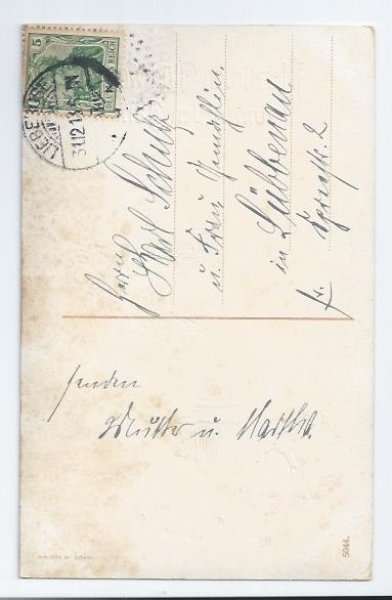 5
LIEBEROSE
31.12.13.
Herrn
Karl Schulz
u. Frau Gemahlin
in Lübbenau
fr. Spreestr. 2
senden
Mutter u. Martha.
5044.